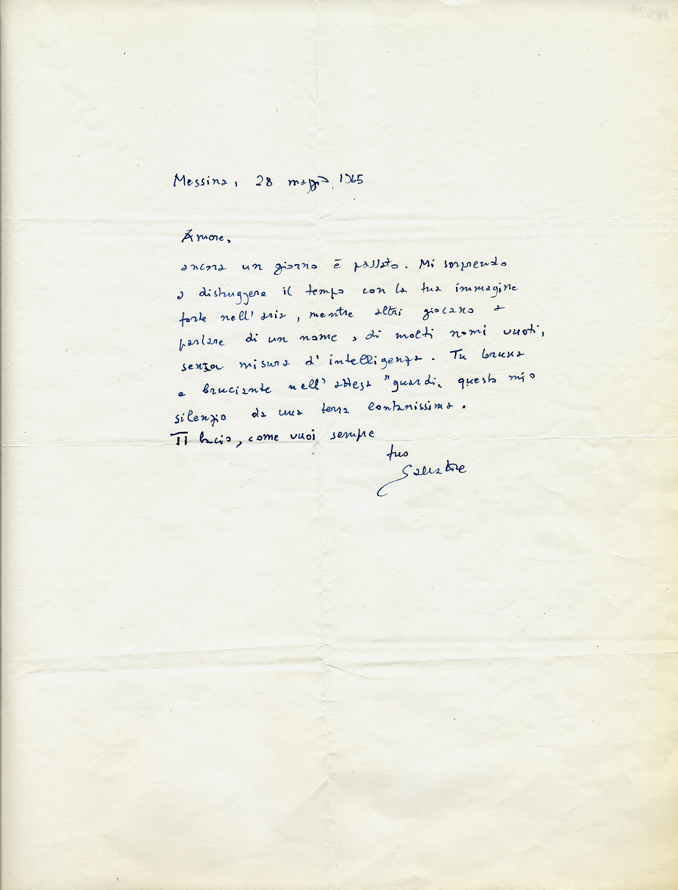 Messina, 28 maggio 1965
Amore,
ancora un giorno è passato. Mi sorprendo
a distruggere il tempo con la tua immagine
forte nell'aria, mentre altri giocano a
parlare di un nome, di molti nomi vuoti,
senza misura d'intelligenza. Tu bruna
e bruciante nell'attesa "guardi" questo mio
silenzio da una terra lontanissima.
Ti bacio, come vuoi sempre
tuo
Salvatore